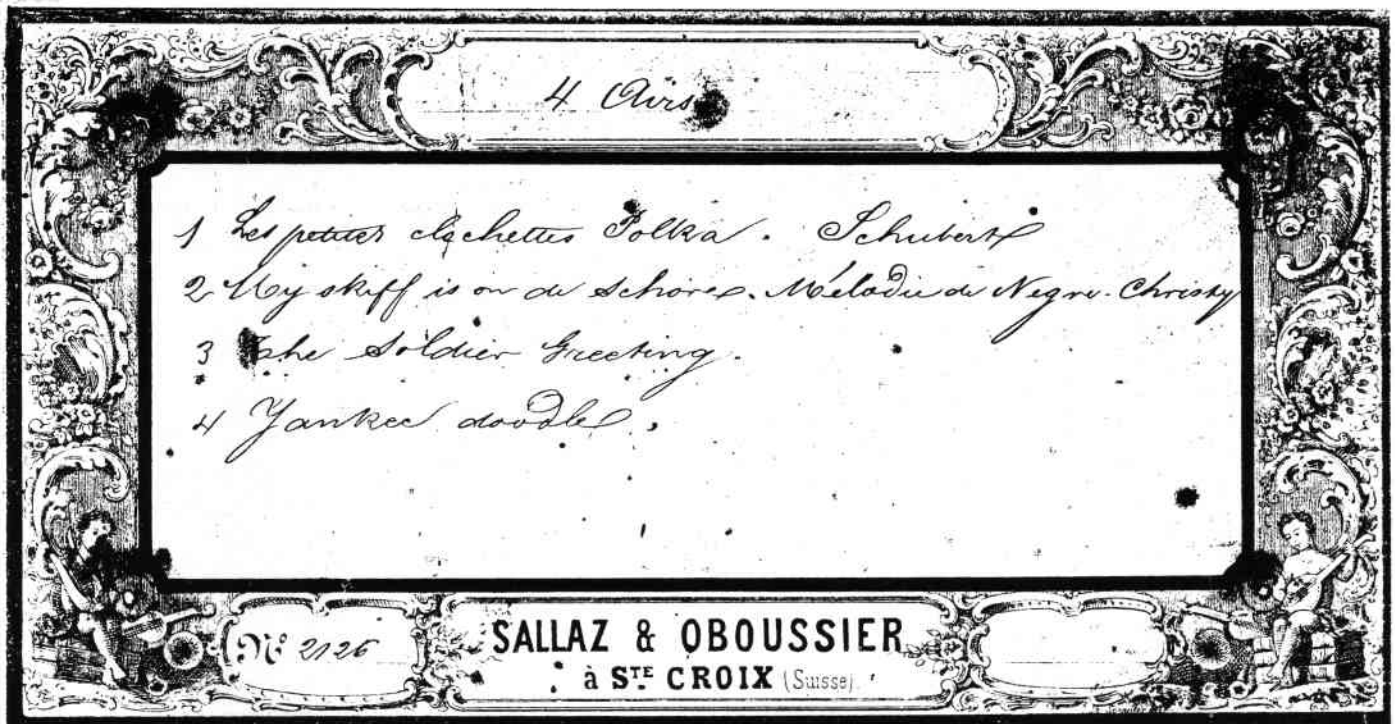 4 Airs
1 Les petites clochettes Polka. Schubert
2 My skiff is on de schore. Mélodie de Negre. Christy
3 The Soldier Greeting.
4 Yankee doodle.
Nº 2126
SALLAZ & OBOUSSIER
à STE CROIX (Suisse).